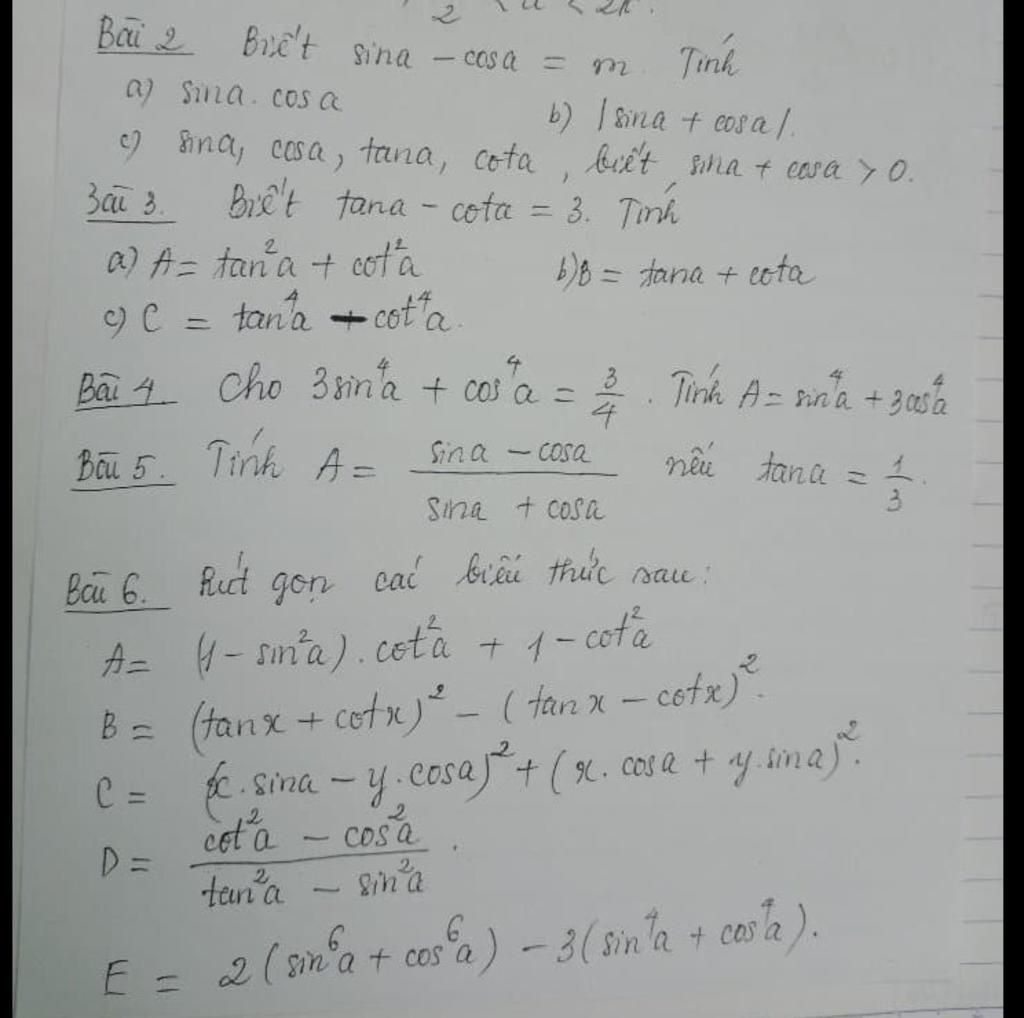 2 < a < 2π.
Bài 2 Biết sina - cosa = m. Tính
a) sina. cosa b) |sina + cosa|.
c) sina, cosa, tana, cota, biết sina + cosa > 0.
Bài 3. Biết tana - cota = 3. Tính
a) A = tan²a + cot²a b) B = tana + cota
c) C = tan⁴a - cot⁴a.
Bài 4. Cho 3sin⁴a + cos⁴a = 3/4. Tính A = sin⁴a + 3cos⁴a
Bài 5. Tính A = (sina - cosa)/(sina + cosa) nếu tana = 1/3.
Bài 6. Rút gọn các biểu thức sau:
A = (1 - sin²a).cot²a + 1 - cot²a
B = (tanx + cotx)² - (tanx - cotx)².
C = (x.sina - y.cosa)² + (x.cosa + y.sina)².
D = (cot²a - cos²a)/(tan²a - sin²a).
E = 2(sin⁶a + cos⁶a) - 3(sin⁴a + cos⁴a).